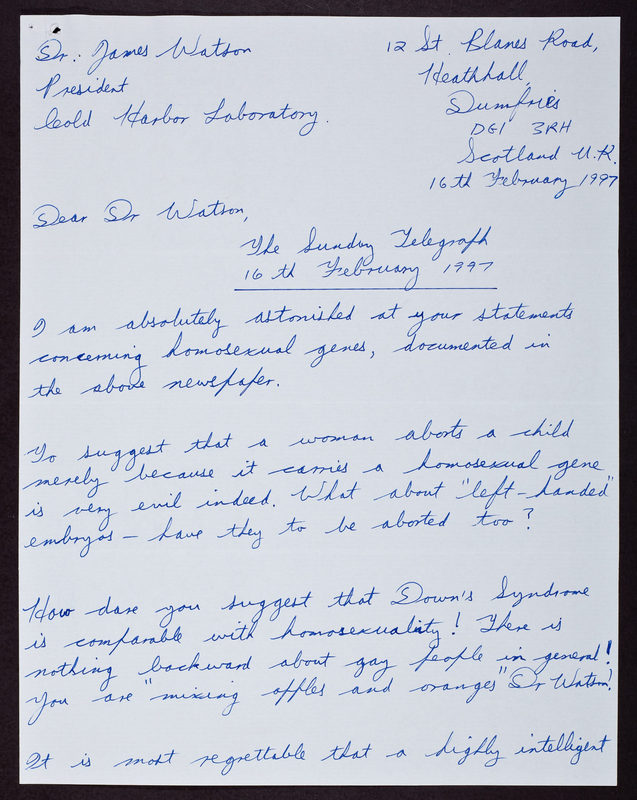 Dr. James Watson
President
Cold Harbor Laboratory.
12 St. Blanes Road,
Heathhall,
Dumfries
DG1 3RH
Scotland U.K.
16th February 1997
Dear Dr Watson,
The Sunday Telegraph
16 th February 1997
I am absolutely astonished at your statements
concerning homosexual genes, documented in
the above newspaper.
To suggest that a woman aborts a child
merely because it carries a homosexual gene
is very evil indeed. What about "left-handed"
embryos - have they to be aborted too?
How dare you suggest that Down's Syndrome
is comparable with homosexuality! There is
nothing backward about gay people in general!
You are "mixing apples and oranges" Dr Watson!
It is most regrettable that a highly intelligent